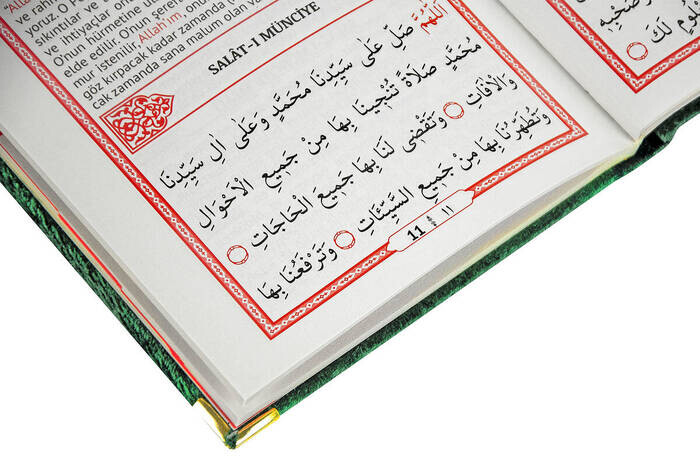 yoruz. O
sıkıntılar ve
ve ihtiyaçlar
Onun hürmetine
elde edilir. Onun
mur istenilir. Allah'ım,
göz kırpacak kadar zamanda
cak zamanda sana malum olan
SALÂT-I MÜNCİYE
اَللّٰهُمَّ صَلِّ عَلٰى سَيِّدِنَا مُحَمَّدٍ وَعَلٰى اٰلِ سَيِّدِنَا
مُحَمَّدٍ صَلَاةً تُنْجِينَا بِهَا مِنْ جَمِيعِ الْاَحْوَالِ
وَالْاٰفَاتِ وَتَقْضِى لَنَا بِهَا جَمِيعَ الْحَاجَاتِ
وَتُطَهِّرُنَا بِهَا مِنْ جَمِيعِ السَّيِّئَاتِ وَتَرْفَعُنَا بِهَا
11 ١١
وَصَحْبِهِ
لَكَ